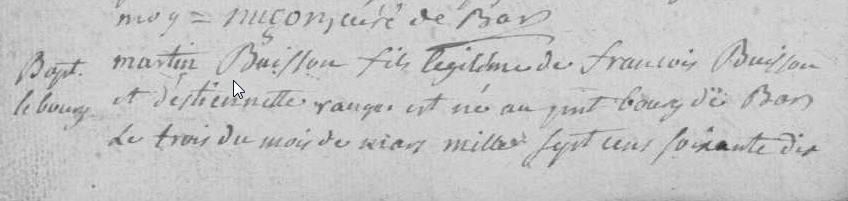 moy = niçon, curé de Bars
Bapt. martin Buisson fils legitime de francois Buisson
le bourg et d'estiennette vanges est né au pnt bourg de Bars
Le trois du mois de mars mille sept cens soixante dix